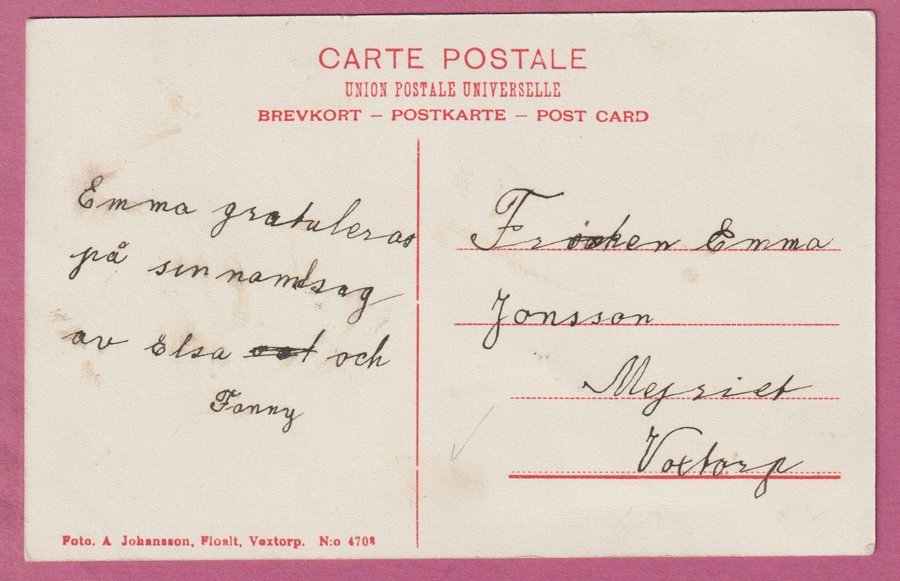 CARTE POSTALE
UNION POSTALE UNIVERSELLE
BREVKORT – POSTKARTE – POST CARD
Emma gratuleras
på sin namdsag
av Elsa och
Fanny
Fröken Emma
Jonsson
Mejriet
Voxtorp
Foto. A Johansson, Floalt, Voxtorp. N:o 4708